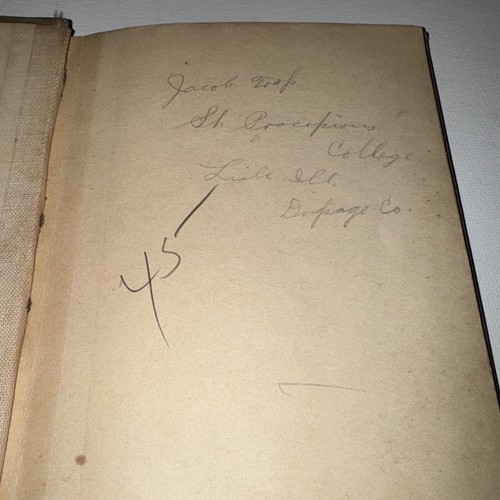 Jacob Trop
St. Procopius
College
Lisle Ill.
Dupage Co.
45